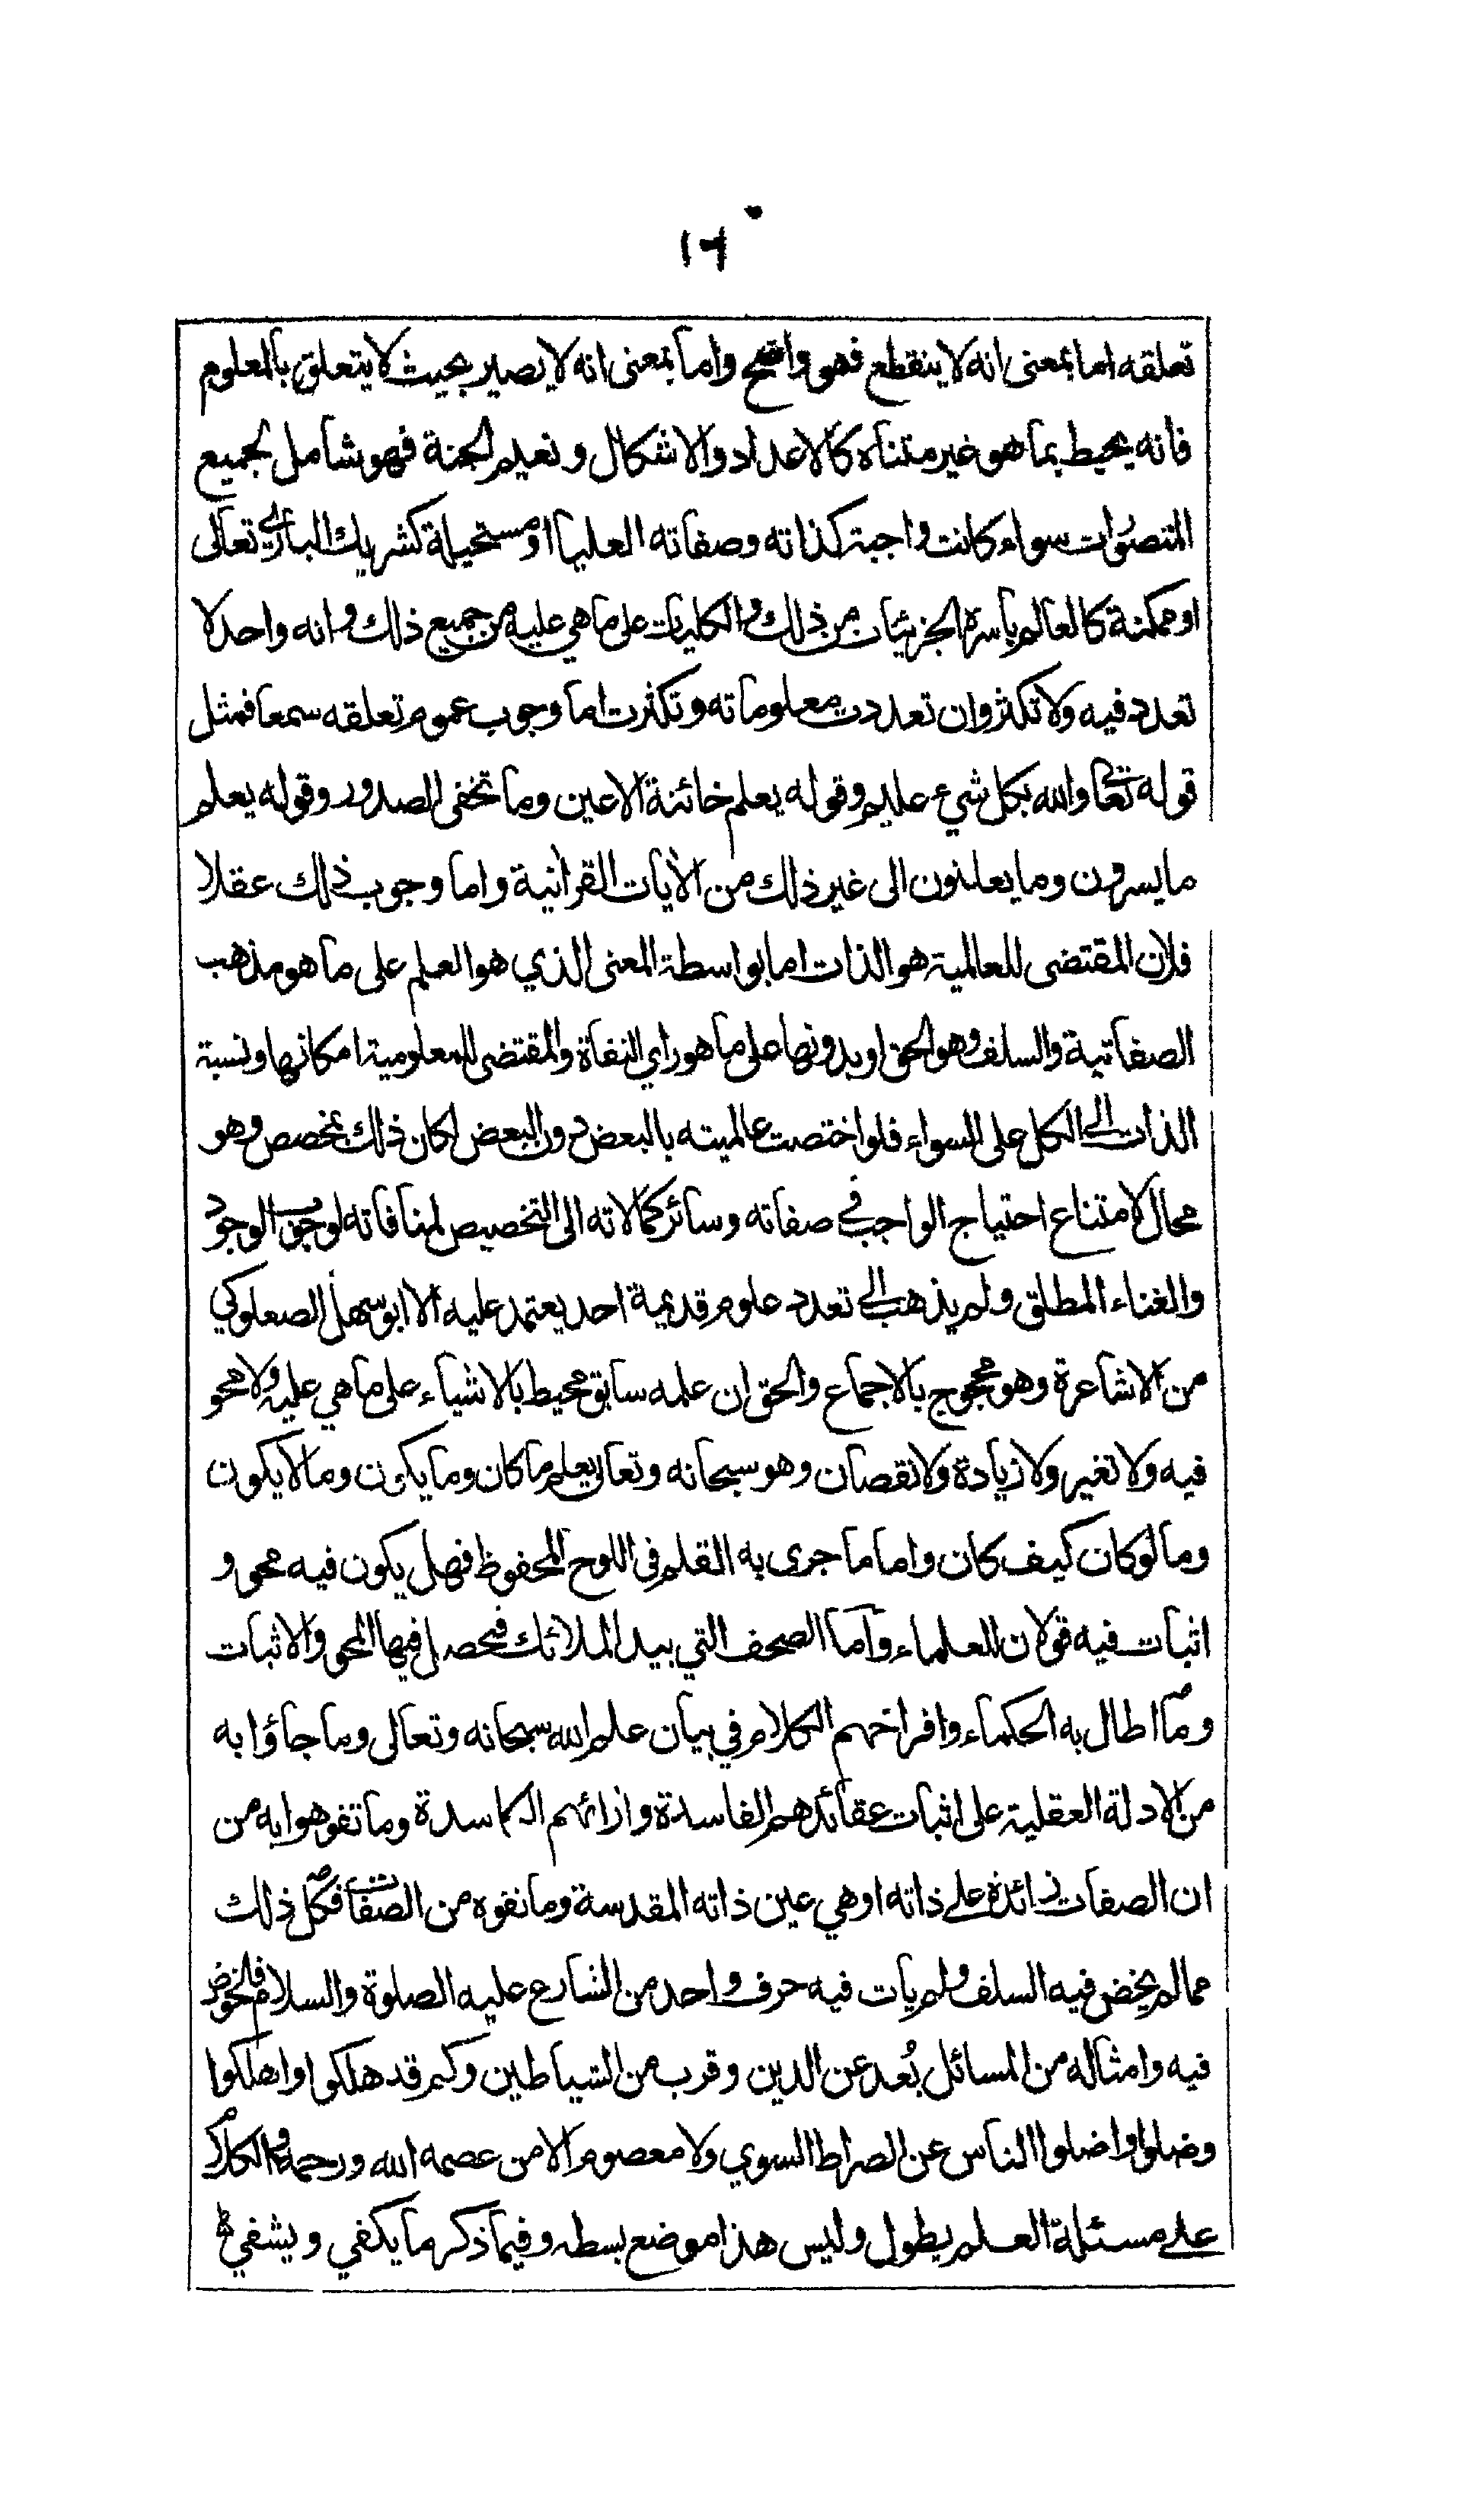 ١٦
تعلقه اما بمعنى انه لا ينقطع فهو واضح واما بمعنى انه لا يصير بحيث لا يتعلق بالمعلوم
فانه يحيط بما هو غير متناه كالاعداد والاشكال ونعيم الجنة فهو شامل لجميع
المتصورات سواء كانت واجبة كذاته وصفاته العليا او مستحيلة كشريك الباري تعالى
او ممكنة كالعالم باسره الجزئيات من ذلك والكليات على ما هي عليه من جميع ذلك وانه واحد لا
تعدد فيه ولا تكثر وان تعددت معلوماته وتكثرت اما وجوب عموم تعلقه سمعا فمثل
قوله تعا والله بكل شيء عليم وقوله يعلم خائنة الاعين وما تخفى الصدور وقوله يعلم
ما يسرون وما يعلنون الى غير ذلك من الآيات القرآنية واما وجوب ذلك عقلا
فلان المقتضى للعالمية هو الذات اما بواسطة المعنى الذي هو العلم على ما هو مذهب
الصفاتية والسلف وهو الحق او بدونها على ما هو راي النفاة والمقتضى للمعلومية امكانها ونسبة
الذات الى الكل على السواء فلو اختصت عالميته بالبعض دون البعض لكان ذلك بمخصص وهو
محال لامتناع احتياج الواجب في صفاته وسائر كمالاته الى التخصيص لمنافاته لوجوب الوجود
والغناء المطلق ولم يذهب الى تعدد علوم قديمة احد يعتمد عليه الا ابو سهل الصعلوكي
من الاشاعرة وهو محجوج بالاجماع والحق ان علمه سابق محيط بالاشياء على ما هي عليه ولا محو
فيه ولا تغير ولا زيادة ولا نقصان وهو سبحانه وتعالى يعلم ما كان وما يكون وما لا يكون
وما لو كان كيف كان واما ما جرى به القلم في اللوح المحفوظ فهل يكون فيه محو و
اثبات فيه قولان للعلماء وآما الصحف التي بيد الملائك فيحصل فيها المحو والاثبات
وما اطال به الحكماء وافراخهم الكلام في بيان علم الله سبحانه وتعالى وما جاؤا به
من الادلة العقلية على اثبات عقائدهم الفاسدة وارائهم الكاسدة وما تفوهوا به من
ان الصفات زائدة على ذاته او هي عين ذاته المقدسة وما نفوه من الصفات فكل ذلك
مما لم يخض فيه السلف ولم يات فيه حرف واحد من الشارع عليه الصلوة والسلام فالخوض
فيه وامثاله من المسائل بُعد عن الدين وقرب من الشياطين وكم قد هلكوا واهلكوا
وضلوا واضلوا الناس عن الصراط السوي ولا معصوم الا من عصمه الله ورحمه والكلام
على مسئلة العلم يطول وليس هذا موضع بسطه وفيما ذكر ما يكفي ويشفي